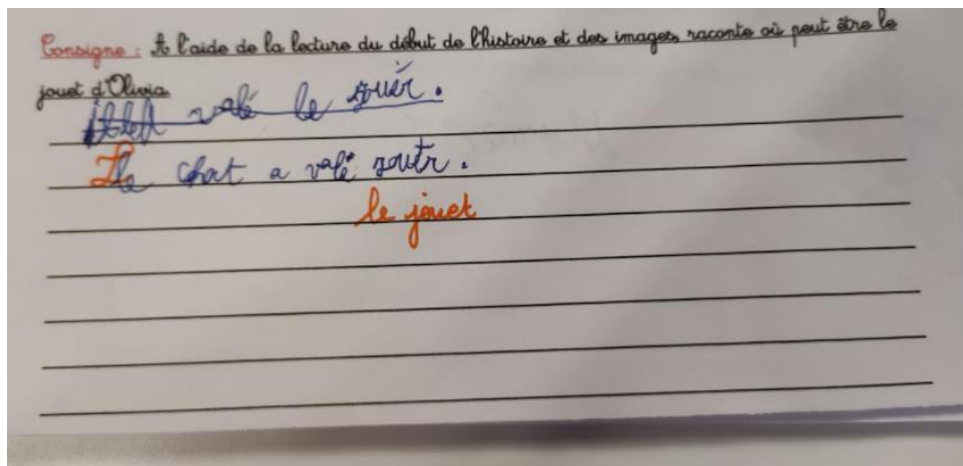 Consigne : A l'aide de la lecture du début de l'histoire et des images, raconte où peut être le
jouet d'Olivia.
valé le
Le chat a valé
le jouet